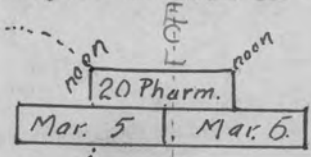 noon
noon
20 Pharm.
Mar. 5
Mar. 6.